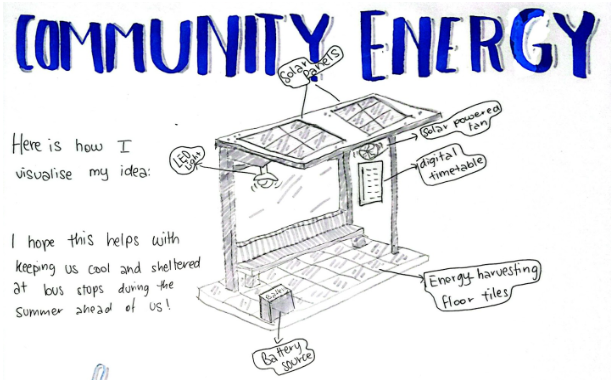 COMMUNITY ENERGY
Solar
Panels
Here is how I
visualise my idea:
LED
light
Solar powered
fan
digital
timetable
I hope this helps with
keeping us cool and sheltered
at bus stops during the
summer ahead of us!
Energy harvesting
floor tiles
Battery
source